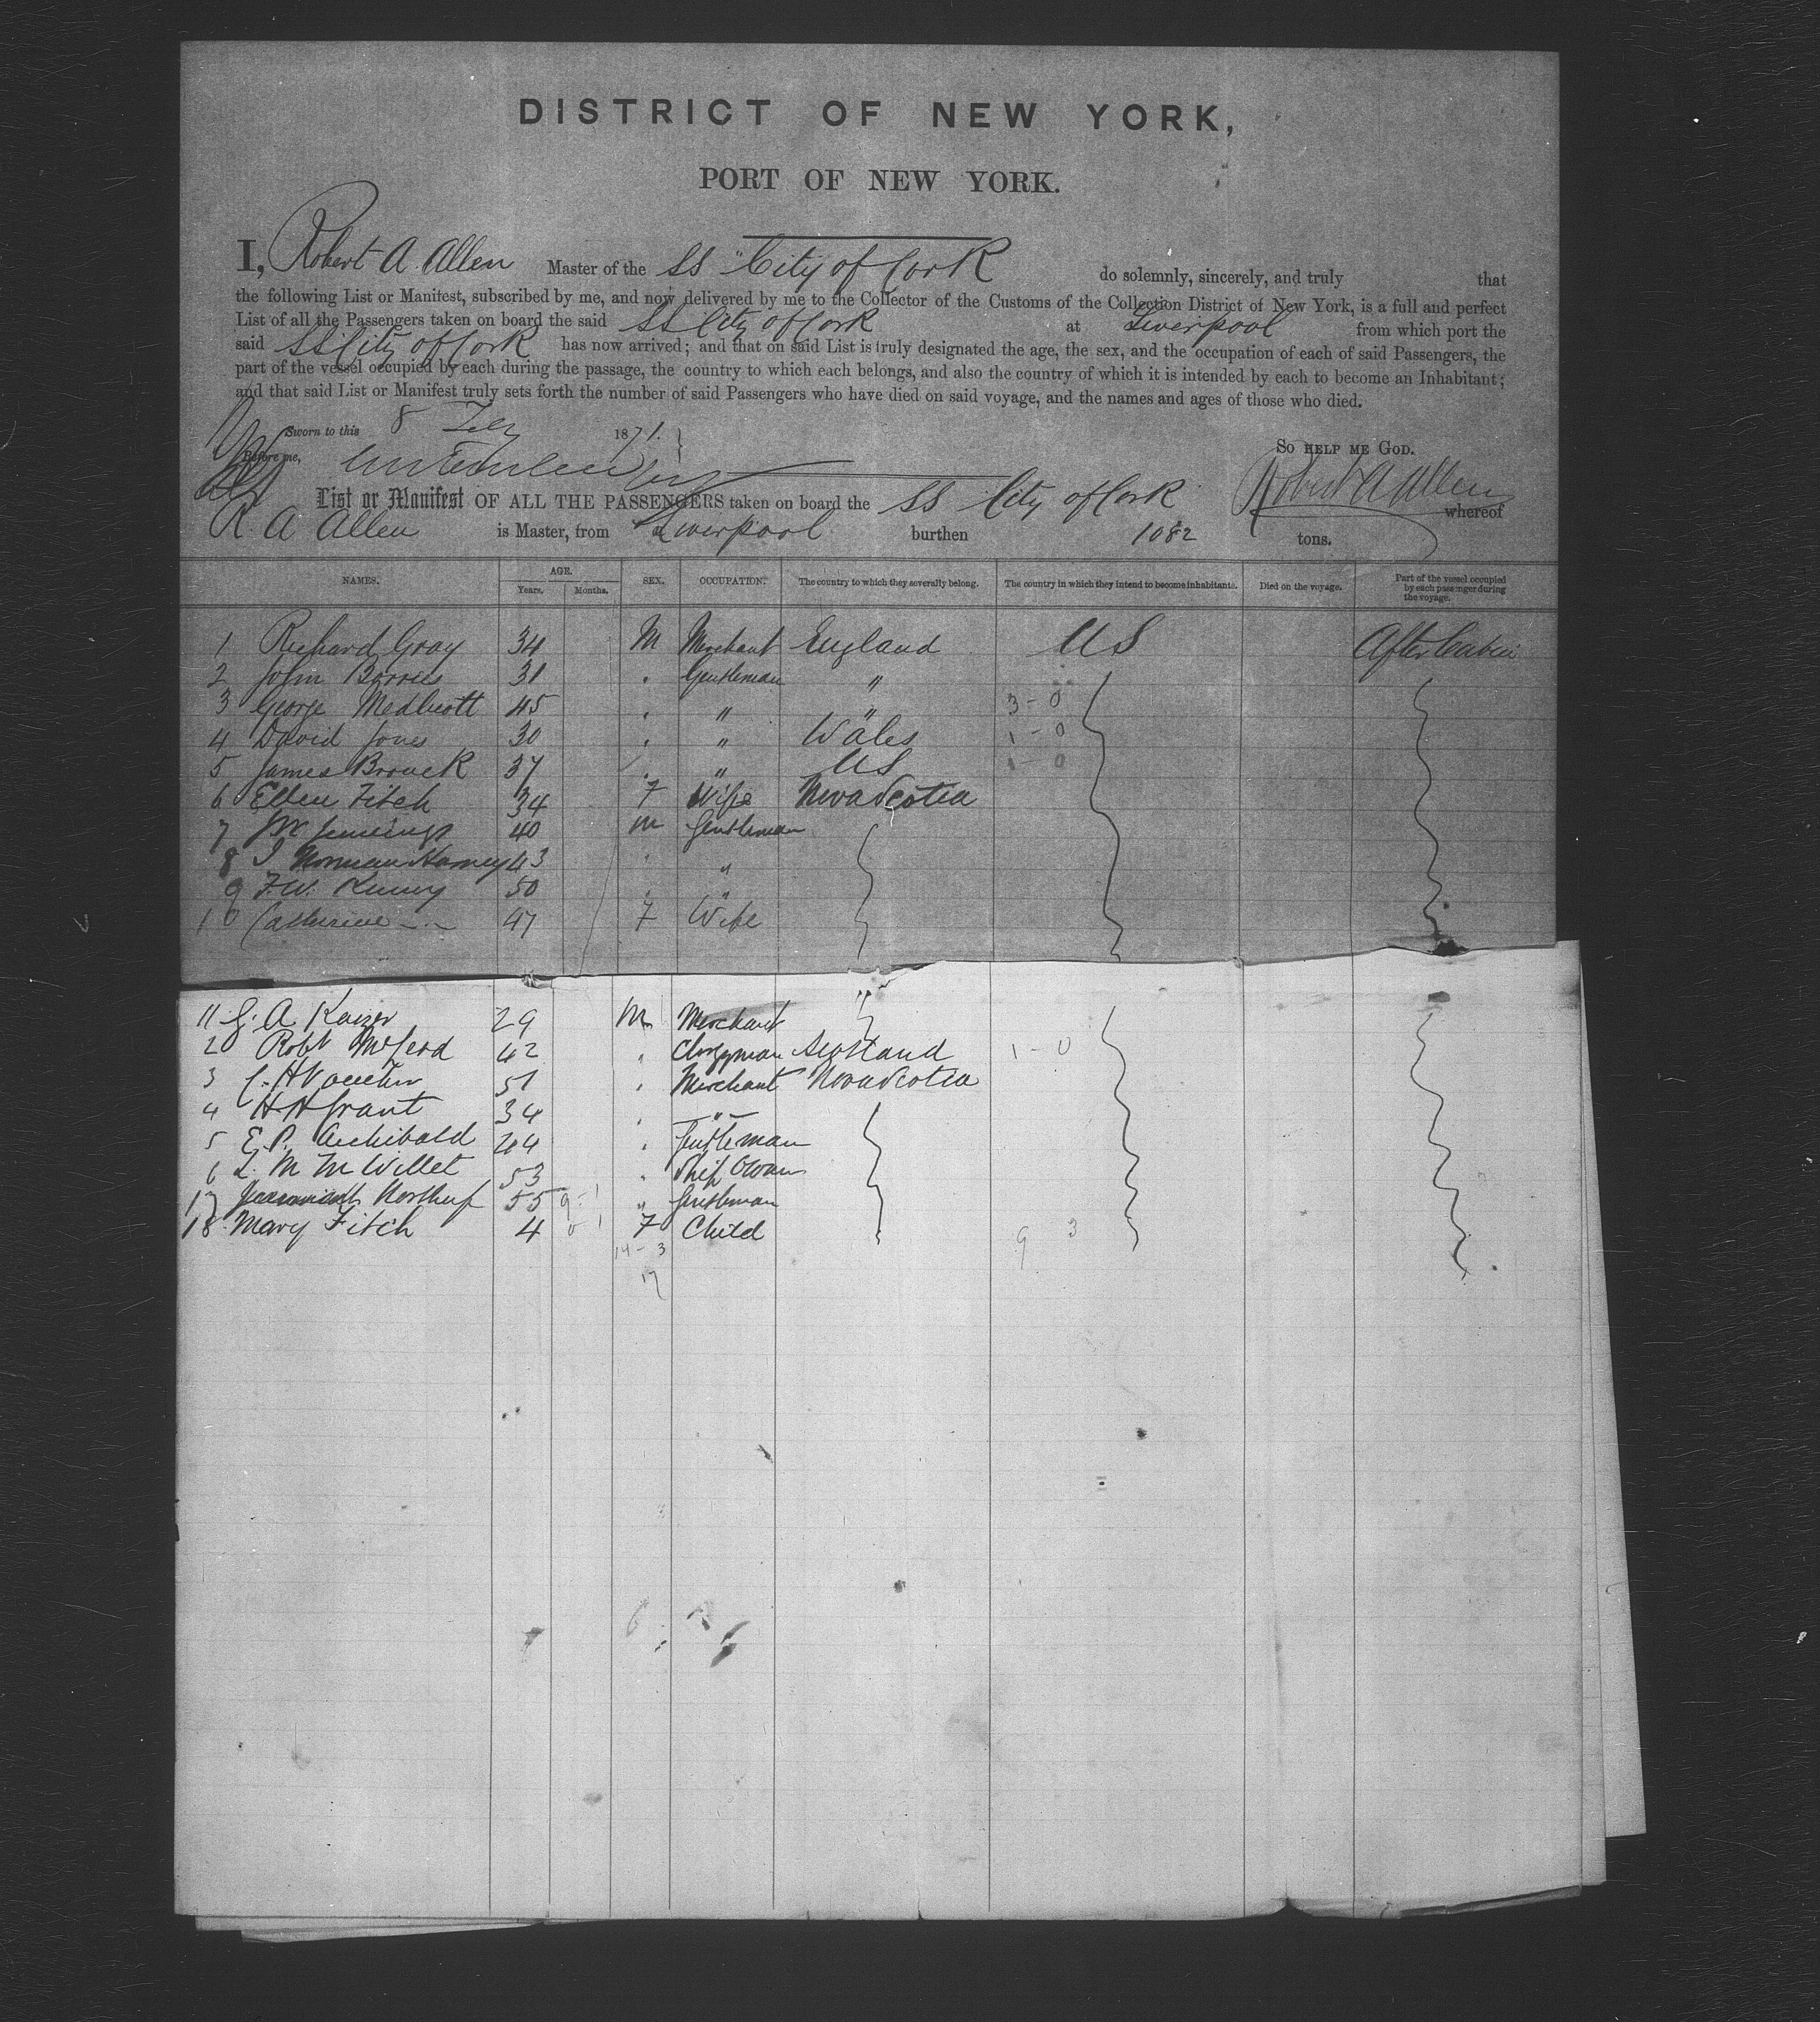 DISTRICT OF NEW YORK,
PORT OF NEW YORK.
I, Robert A. Allen Master of the SS "City of Cork do solemnly, sincerely, and truly that
the following List or Manifest, subscribed by me, and now delivered by me to the Collector of the Customs of the Collection District of New York, is a full and perfect
List of all the Passengers taken on board the said SS City of Cork at Liverpool from which port the
said SS City of Cork has now arrived; and that on said List is truly designated the age, the sex, and the occupation of each of said Passengers, the
part of the vessel occupied by each during the passage, the country to which each belongs, and also the country of which it is intended by each to become an Inhabitant;
and that said List or Manifest truly sets forth the number of said Passengers who have died on said voyage, and the names and ages of those who died.
Sworn to this 8 Feby 1871.
Before me,
SO HELP ME GOD.
Robert A Allen
List or Manifest OF ALL THE PASSENGERS taken on board the SS City of Cork whereof
R. A Allen is Master, from Liverpool burthen 1082 tons.
NAMES. AGE. Years. Months. SEX. OCCUPATION. The country to which they severally belong. The country in which they intend to become inhabitants. Died on the voyage. Part of the vessel occupied by each passenger during the voyage.
1 Richard Gray 34 M Merchant England US After Cabin
2 John 31 " Gentleman "
3 George Medlicott 45 " " " 3-0
4 David Jones 30 " " Wales 1-0
5 James 37 " " US 1-0
6 Ellen Fitch 34 F Wife Nova Scotia
7 Jennings 40 M Gentleman
8 Norman 43 " "
9 F.W. 50 " "
10 Catherine -.- 47 F Wife
11 A Kaizer 29 M Merchant
2 Robt 42 " Clergyman Scotland 1-0
3 51 " Merchant Nova Scotia
4 H H Grant 34 " "
5 E. P. Archibald 44 " Gentleman
6 L. M Willet 53 " Ship Owner
17 Northup 55 9-1 " Gentleman
18 Mary Fitch 4 0 1 F Child 9 3
14-3
17